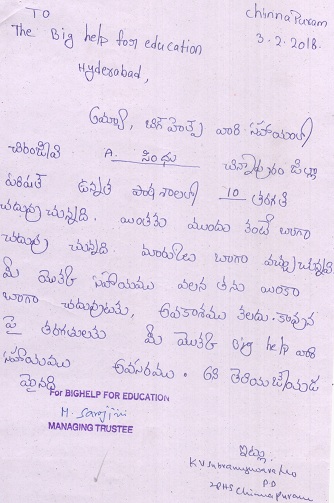 TO
The Big help for education
Hyderabad,
Chinna Puram
3-2-2018.
అమ్మా, బిగ్ హెల్ప్ వారి సహాయంతో
చిరంజీవి A. సింధు చిన్నాపురం జిల్లా
పరిషత్ ఉన్నత పాఠశాలలో 10 తరగతి
చదువు చున్నది. ఇంతకు ముందు కంటే బాగా
చదువు చున్నది. మార్కులు బాగా వచ్చు చున్నవి
మీ యొక్క సహాయము వలన తను ఇంకా
బాగా చదువుటకు, అవకాశము కలదు. కావున
పై తరగతులకు మీ యొక్క big help వారి
సహాయము అవసరము. అని తెలియచేయుట
మైనది
For BIGHELP FOR EDUCATION
M. Sarojini
MANAGING TRUSTEE
ఇట్లు
PD
ZPHS Chinnapuram